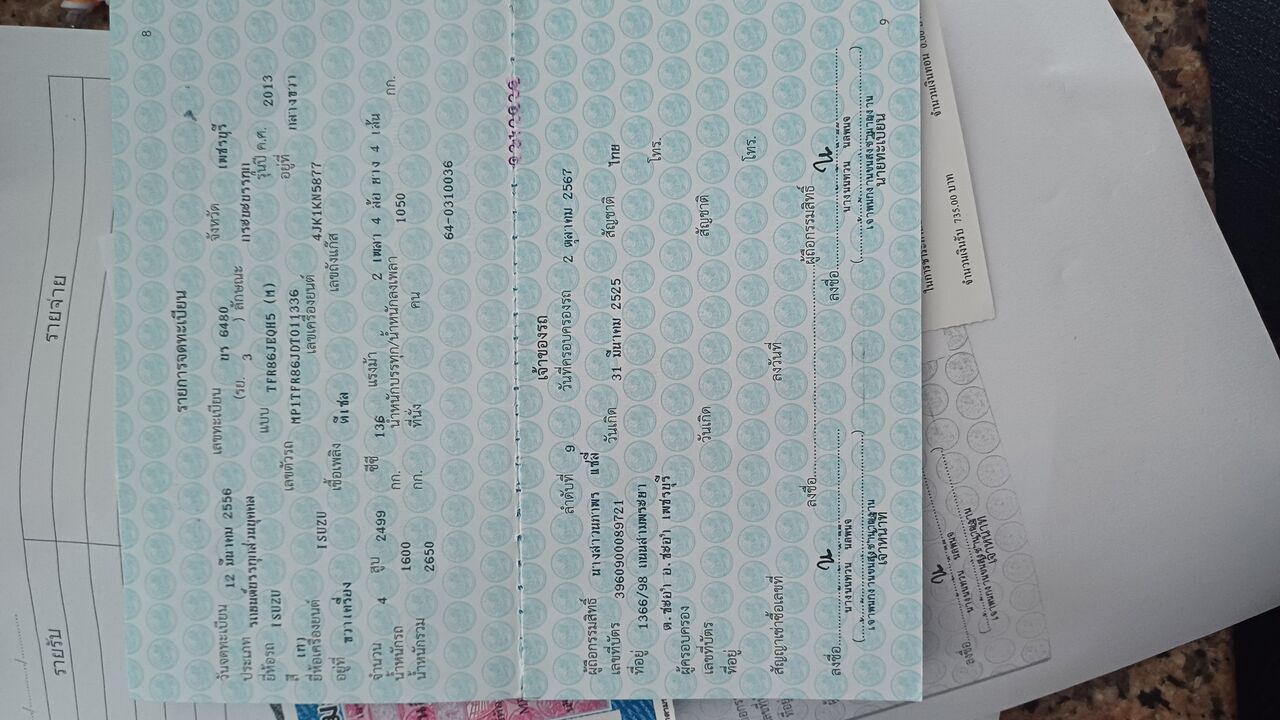 8
รายการจดทะเบียน
วันจดทะเบียน 12 มีนาคม 2556 เลขทะเบียน ยร 6480 จังหวัด เพชรบุรี
ประเภท รถยนต์บรรทุกส่วนบุคคล (รย. 3 ) ลักษณะ กระบะบรรทุก
ยี่ห้อรถ ISUZU แบบ TFR86JEQH5 (M) รุ่นปี ค.ศ. 2013
สี เทา เลขตัวรถ MP1TFR86JDT011336 อยู่ที่ กลางขวา
ยี่ห้อเครื่องยนต์ ISUZU เลขเครื่องยนต์ 4JK1KN5877
อยู่ที่ ขวาเครื่อง เชื้อเพลิง ดีเซล เลขถังแก๊ส
จำนวน 4 สูบ 2499 ซีซี 136 แรงม้า 2 เพลา 4 ล้อ ยาง 4 เส้น
น้ำหนักรถ 1600 กก. น้ำหนักบรรทุก/น้ำหนักลงเพลา 1050 กก.
น้ำหนักรวม 2650 กก. ที่นั่ง คน
64-0310036
เจ้าของรถ
ลำดับที่ 9 วันที่ครอบครองรถ 2 ตุลาคม 2567
ผู้ถือกรรมสิทธิ์ นางสาวนภาพร แซ่ลี้
เลขที่บัตร 3960900089721 วันเกิด 31 มีนาคม 2525 สัญชาติ ไทย
ที่อยู่ 1366/98 ถนนสามพระยา โทร.
ต.ชะอำ อ.ชะอำ เพชรบุรี
ผู้ครอบครอง
เลขที่บัตร วันเกิด สัญชาติ
ที่อยู่ โทร.
สัญญาเช่าซื้อเลขที่ ลงวันที่
ลงชื่อ ผู้ถือกรรมสิทธิ์
ลงชื่อ ลงชื่อ
เจ้าหน้าที่ นายทะเบียน
9
รายรับ รายจ่าย
จำนวนเงินรับ 735.00 บาท
จำนวนเงินทอน
ลงชื่อ
เจ้าหน้าที่